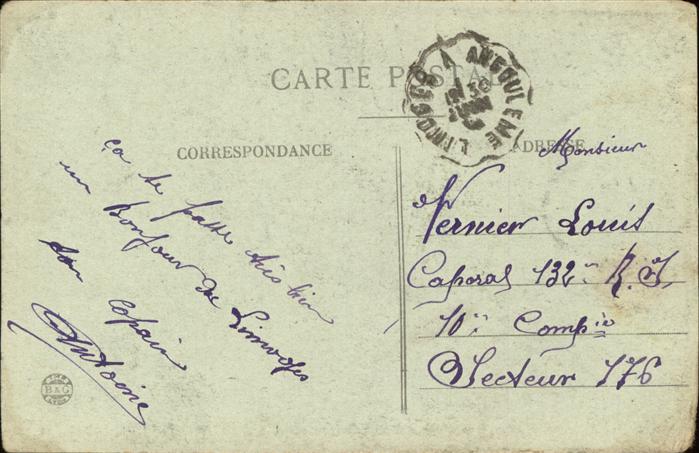 CARTE POSTALE
LIMOGES A ANGOULEME
30
CORRESPONDANCE
ADRESSE
ça se passe très bien
un Bonjour de Limoges
ton copain
Antoine
B&G
Monsieur
Vernier Louis
Caporal 132e R.I.
10e Compie
Secteur 176